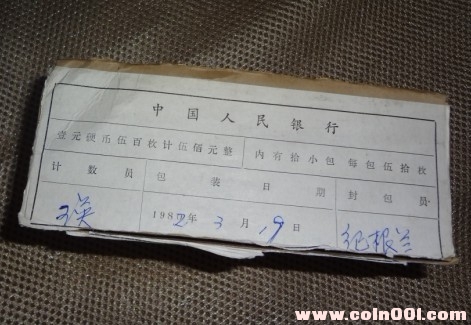 中国人民银行
壹元硬币伍百枚计伍佰元整 内有拾小包 每包伍拾枚
计数员 包装日期 封包员
王英 1982年3月19日 纪根兰
www.coin001.com